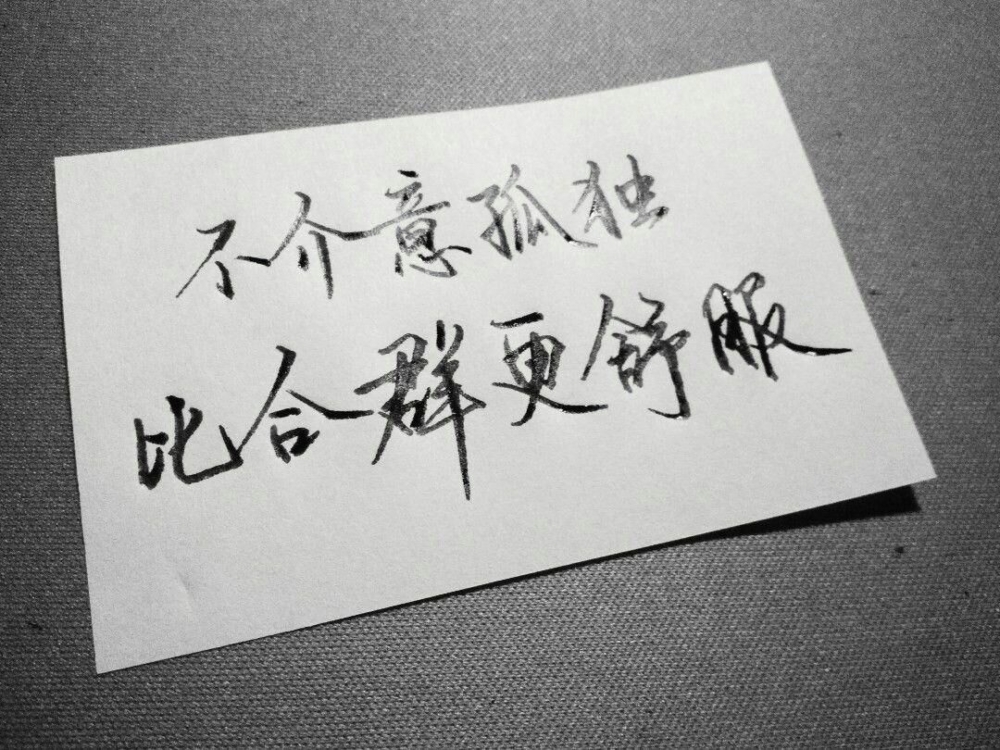 不介意孤独
比合群更舒服